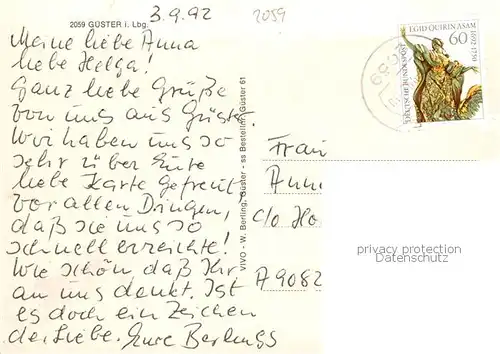 3.9.92
2059
2059 GÜSTER i. Lbg.
Meine liebe Anna
liebe Helga!
Ganz liebe Grüße
von uns aus Güster.
Wir haben uns so
sehr über Eure
liebe Karte gefreut!
Vor allen Dingen,
daß sie uns so
schnell erreichte!
Wie schön, daß Ihr
an uns denkt. Ist
es doch ein Zeichen
der Liebe. Eure Berlings
VIVO - W. Berling, Güster - ss Bestellnr. Güster 61
EGID QUIRIN ASAM
1692-1750
60
DEUTSCHE BUNDESPOST
2059
Frau
Anne
c/o Ho
A 9082
privacy protection
Datenschutz